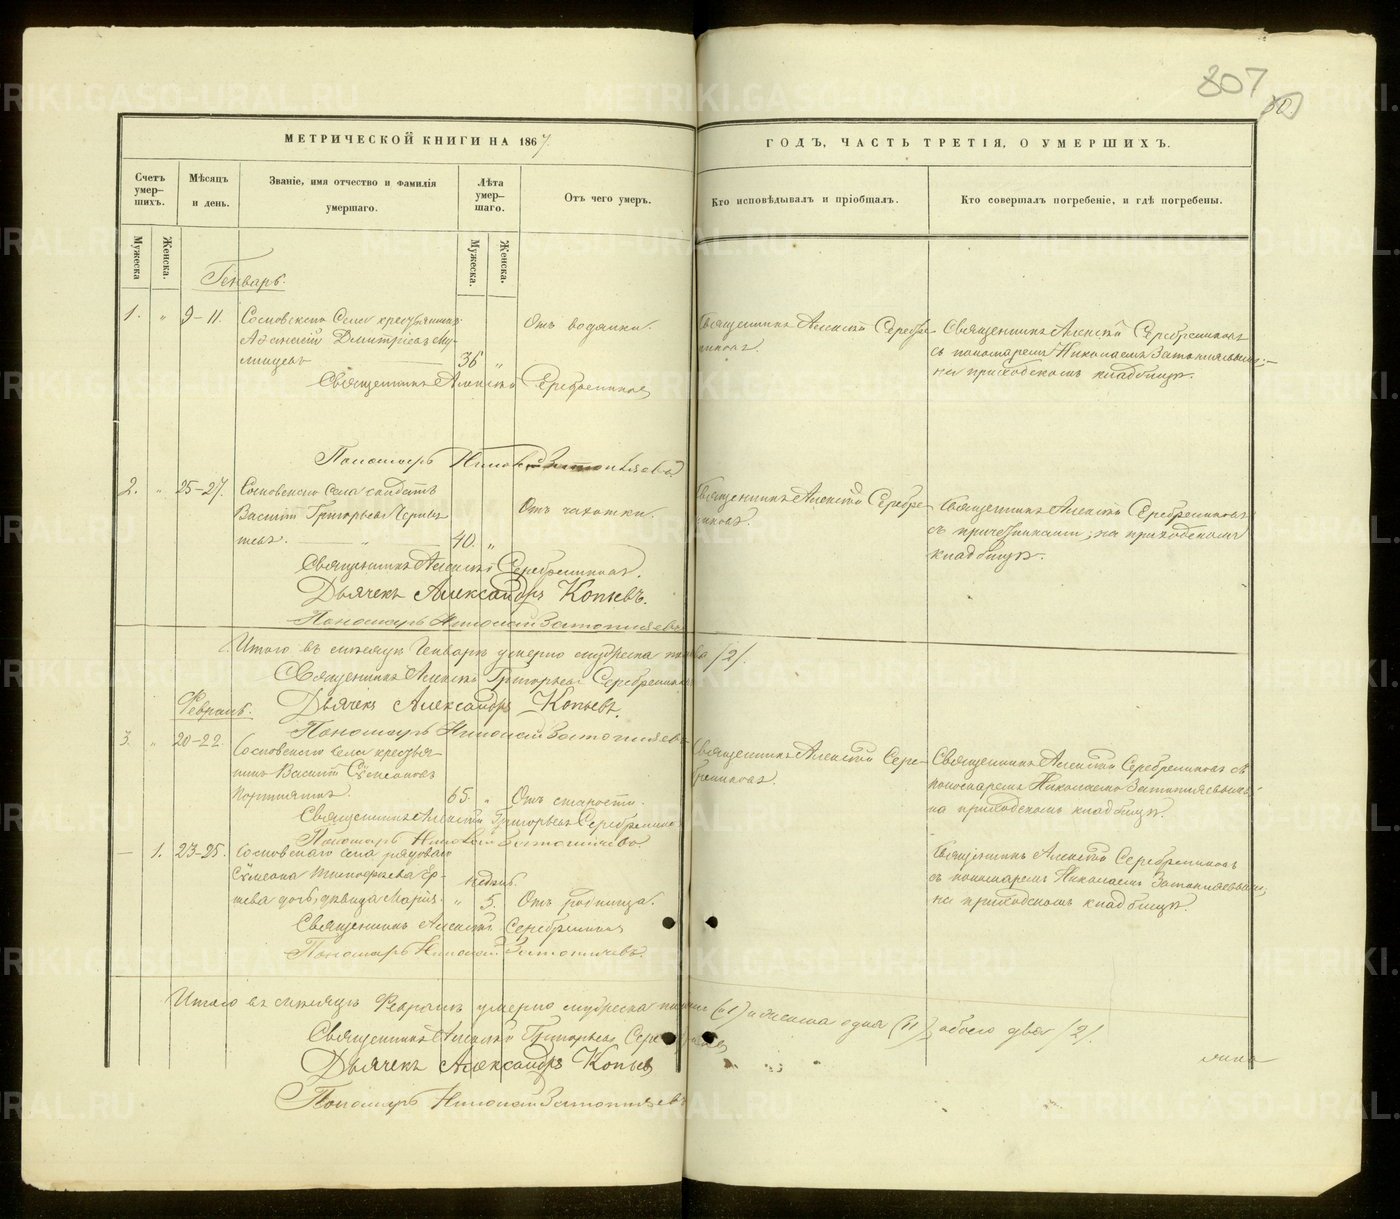 807
МЕТРИЧЕСКОЙ КНИГИ НА 1867
ГОДЪ, ЧАСТЬ ТРЕТІЯ, О УМЕРШИХЪ.
Счетъ умер-шихъ.
Мѣсяцъ и день.
Званіе, имя отчество и фамилія умершаго.
Лѣта умер-шаго.
Отъ чего умеръ.
Кто исповѣдывалъ и пріобщалъ.
Кто совершалъ погребеніе, и гдѣ погребены.
Мужеска
Женска.
Мужеска.
Женска.
Генварь.
1. " 9–11. Сосновскаго Села крестьянинъ
Дмитріевъ
36 "
Отъ водянки.
Священникъ Алексій Серебре-
никовъ.
Священникъ Алексій Серебрениковъ
съ пономаремъ Николаемъ
на приходскомъ кладбищѣ.
Священникъ Алексій Серебрениковъ
Пономарь
2. " 25–27. Сосновскаго Села солдатъ
Василій Григорьевъ
40. "
Отъ чахотки.
Священникъ Алексій Серебре-
никовъ.
Священникъ Алексій Серебрениковъ
съ причетниками, на приходскомъ
кладбищѣ.
Священникъ Алексій Серебрениковъ.
Дьячекъ Александръ Копьевъ.
Пономарь Николай
Итого въ мѣсяцѣ Генварѣ умерло мужеска пола /2/.
Священникъ Алексій Григорьевъ Серебрениковъ
Дьячекъ Александръ Копьевъ.
Пономарь Николай
Февраль.
3. " 20–22. Сосновскаго села крестья-
нинъ Василій Сѵмеоновъ
65. "
Отъ старости.
Священникъ Алексій Сере-
брениковъ.
Священникъ Алексій Серебрениковъ съ
пономаремъ Николаемъ
на приходскомъ кладбищѣ.
Священникъ Алексій Григорьевъ Серебрениковъ
Пономарь Николай
— 1. 23–25. Сосновскаго села рядоваго
Сѵмеона Тимофѣева
дочь, дѣвица Марія. " 5. недѣль.
Отъ родимца.
Священникъ Алексій Серебрениковъ
съ пономаремъ Николаемъ
на приходскомъ кладбищѣ.
Священникъ Алексій Серебрениковъ
Пономарь Николай
Итого въ мѣсяцѣ Февралѣ умерло мужеска одна обоего двое /2/.
Священникъ Алексій Григорьевъ Серебрениковъ
Дьячекъ Александръ Копьевъ
Пономарь Николай
METRIKI.GASO-URAL.RU